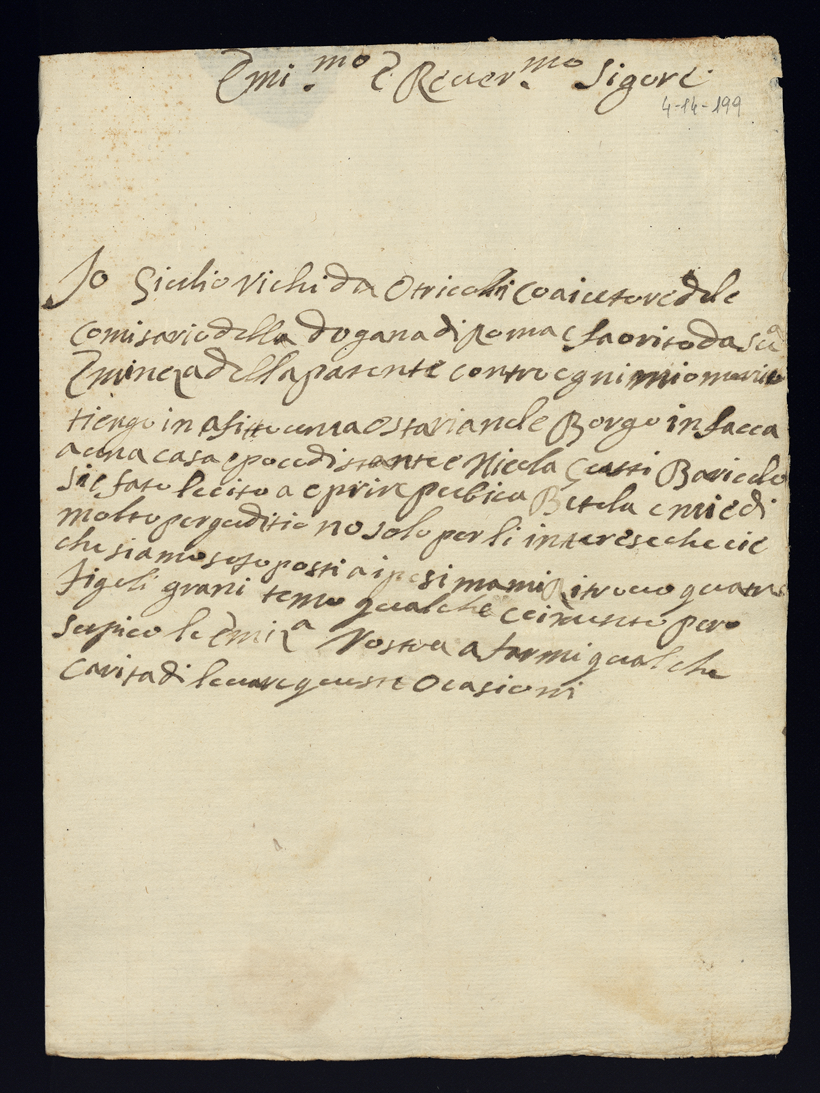 Emi.mo E Reuer.mo Sigore
4-14-199
Io Giulio Vichi da Otricolli Coaiutore dele
Comisario della dogana di Roma e faorito da Sua
Emineza della patente contro ogni mio merito
tiengo in afitto una Ostaria nele Borgo in facca
a una casa e poco distante e Nicola Gusti Baricelo
si e fato lecito a eprire publica Betela e mie di
molto pergiuditio no solo per li interese che cie
che siamo sotoposti a i pesi ma mi ritrouo quatro
figeli grani temo qualche ceimento pero
Suplico le Emiza Vostra a farmi qualche
Carita di leuare queste Ocasioni